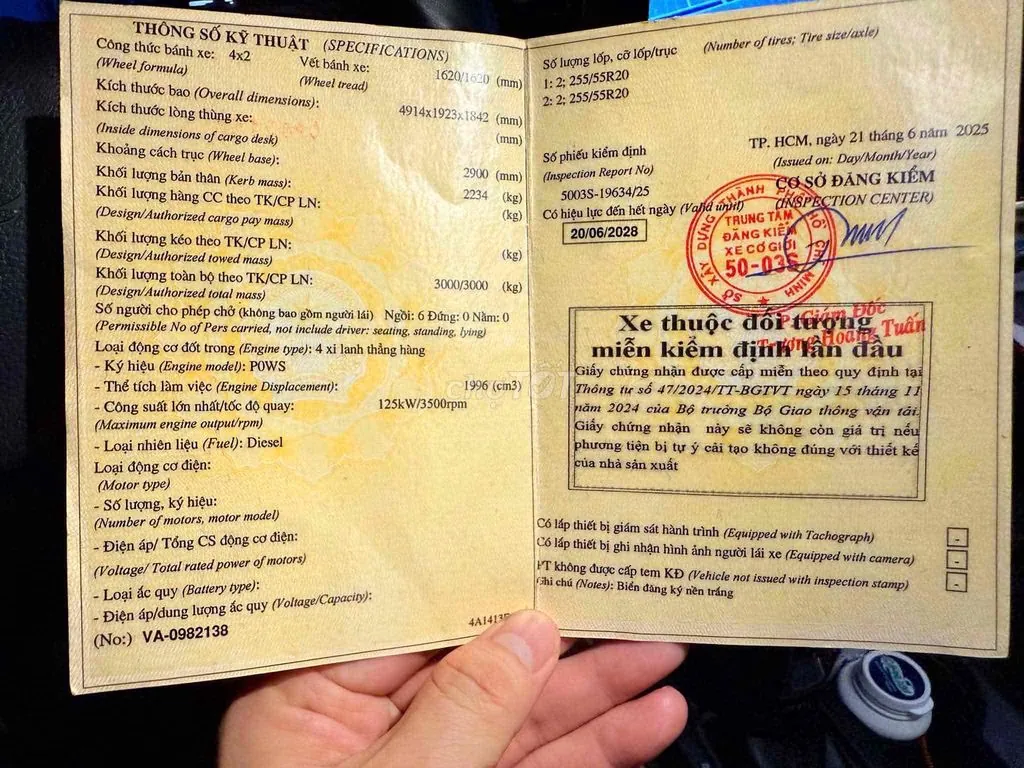 THÔNG SỐ KỸ THUẬT (SPECIFICATIONS)
Công thức bánh xe: 4x2 Vết bánh xe: 1620/1620 (mm)
(Wheel formula) (Wheel tread)
Kích thước bao (Overall dimensions): 4914x1923x1842 (mm)
Kích thước lòng thùng xe: (mm)
(Inside dimensions of cargo desk)
Khoảng cách trục (Wheel base): 2900 (mm)
Khối lượng bản thân (Kerb mass): 2234 (kg)
Khối lượng hàng CC theo TK/CP LN: (kg)
(Design/Authorized cargo pay mass)
Khối lượng kéo theo TK/CP LN: (kg)
(Design/Authorized towed mass)
Khối lượng toàn bộ theo TK/CP LN: 3000/3000 (kg)
(Design/Authorized total mass)
Số người cho phép chở (không bao gồm người lái) Ngồi: 6 Đứng: 0 Nằm: 0
(Permissible No of Pers carried, not include driver: seating, standing, lying)
Loại động cơ đốt trong (Engine type): 4 xi lanh thẳng hàng
- Ký hiệu (Engine model): P0WS
- Thể tích làm việc (Engine Displacement): 1996 (cm3)
- Công suất lớn nhất/tốc độ quay: 125kW/3500rpm
(Maximum engine output/rpm)
- Loại nhiên liệu (Fuel): Diesel
Loại động cơ điện:
(Motor type)
- Số lượng, ký hiệu:
(Number of motors, motor model)
- Điện áp/ Tổng CS động cơ điện:
(Voltage/ Total rated power of motors)
- Loại ắc quy (Battery type):
- Điện áp/dung lượng ắc quy (Voltage/Capacity):
(No:) VA-0982138
4A1413
Số lượng lốp, cỡ lốp/trục (Number of tires; Tire size/axle)
1: 2; 255/55R20
2: 2; 255/55R20
TP. HCM, ngày 21 tháng 6 năm 2025
Số phiếu kiểm định (Issued on: Day/Month/Year)
(Inspection Report No) CƠ SỞ ĐĂNG KIỂM
5003S-19634/25 (INSPECTION CENTER)
Có hiệu lực đến hết ngày (Valid until)
20/06/2028
SỞ XÂY DỰNG THÀNH PHỐ HỒ CHÍ MINH
TRUNG TÂM
ĐĂNG KIỂM
XE CƠ GIỚI
50-03S
Giám Đốc
Trương Hoàng Tuấn
Xe thuộc đối tượng
miễn kiểm định lần đầu
Giấy chứng nhận được cấp miễn theo quy định tại
Thông tư số 47/2024/TT-BGTVT ngày 15 tháng 11
năm 2024 của Bộ trưởng Bộ Giao thông vận tải.
Giấy chứng nhận này sẽ không còn giá trị nếu
phương tiện bị tự ý cải tạo không đúng với thiết kế
của nhà sản xuất
Có lắp thiết bị giám sát hành trình (Equipped with Tachograph) -
Có lắp thiết bị ghi nhận hình ảnh người lái xe (Equipped with camera) -
PT không được cấp tem KĐ (Vehicle not issued with inspection stamp) -
Ghi chú (Notes): Biển đăng ký nền trắng